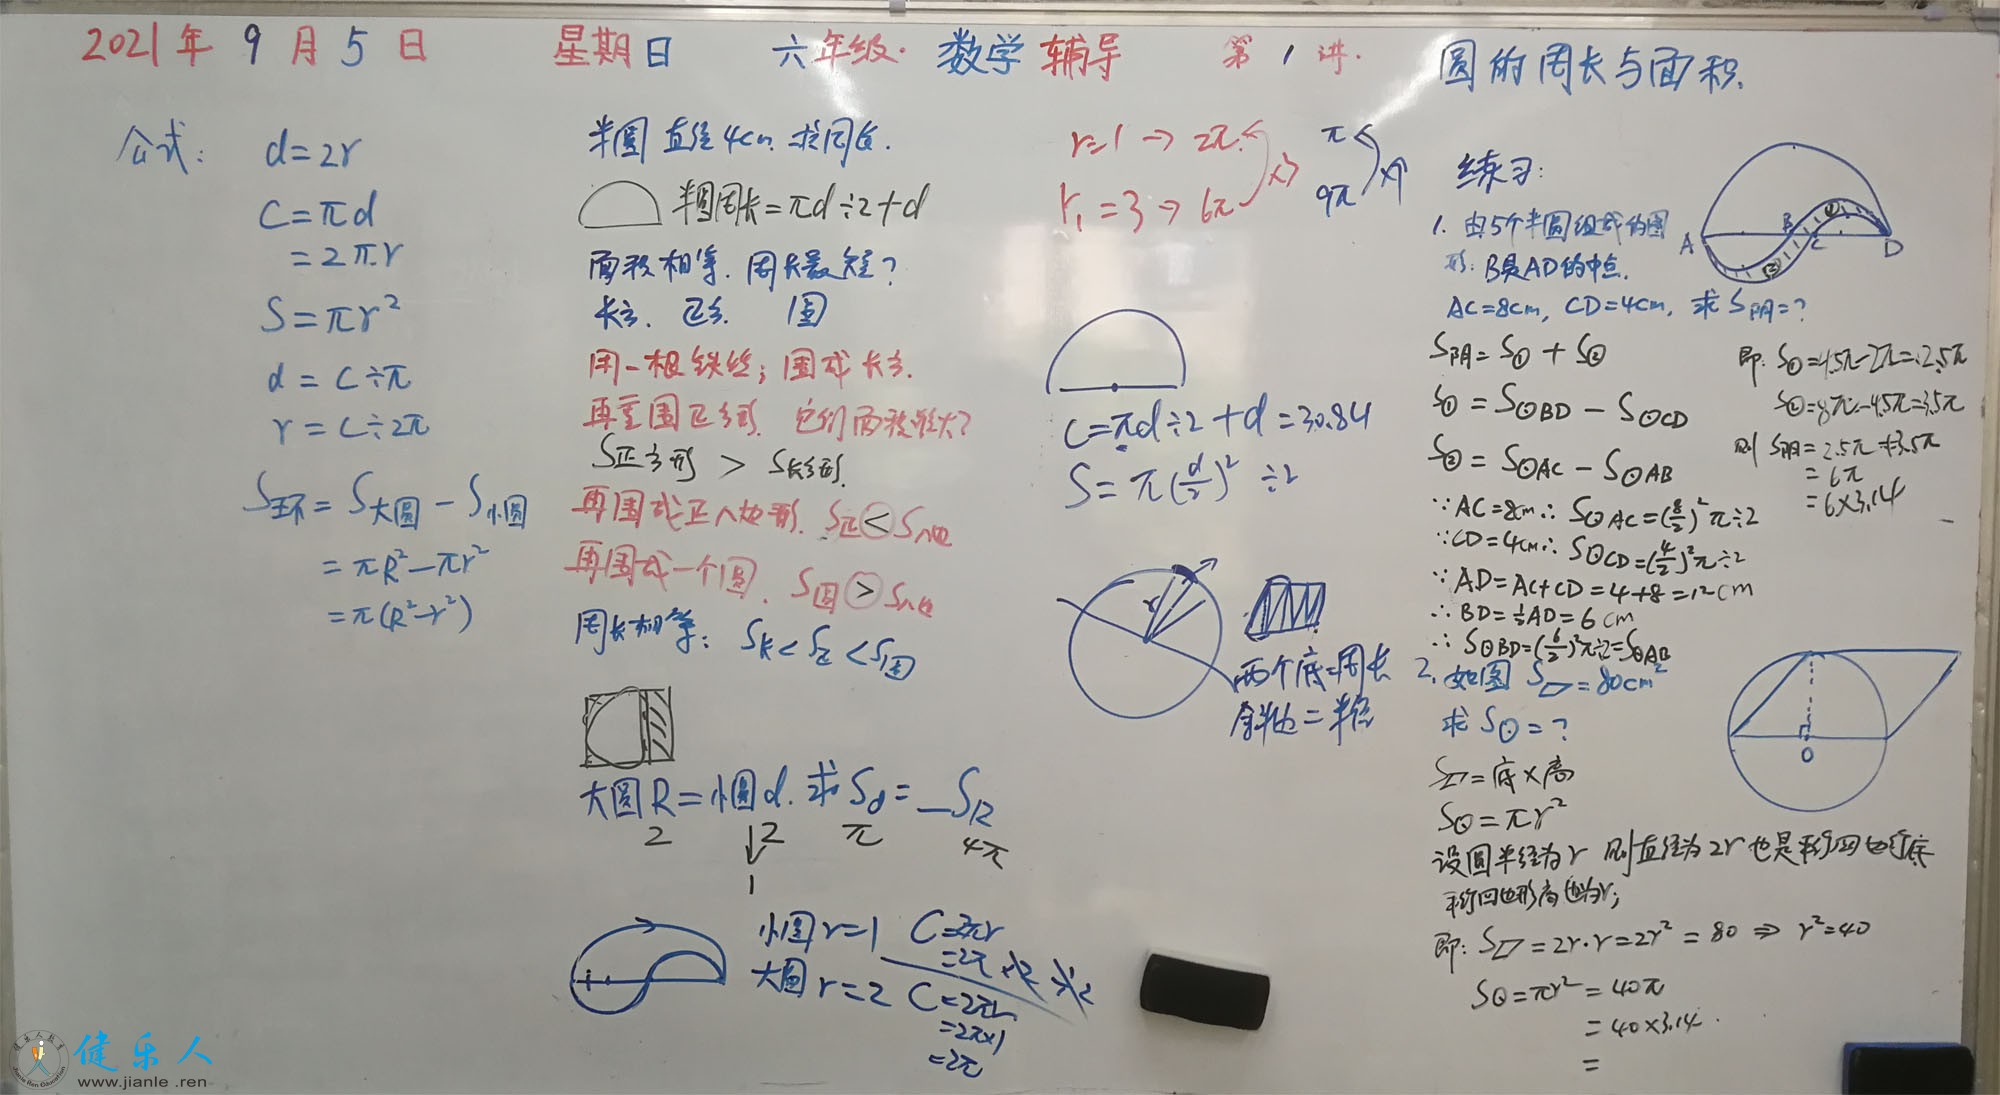 2021年 9 月 5 日 星期日 六年级· 数学 辅导 第 1 讲· 圆的周长与面积.
公式: d=2r
C=πd
=2πr
S=πr²
d=C÷π
r=C÷2π
S环=S大圆-S小圆
=πR²-πr²
=π(R²-r²)
半圆 直径4cm. 求周长.
半圆周长=πd÷2+d
面积相等. 周长最短?
长方. 正方. 圆
用一根铁丝; 围成长方.
再重围正方形. 它们面积谁大?
S正方形 > S长方形.
再围成正八边形. S正<S八边
再围成一个圆. S圆>S八边
周长相等: S长<S正<S圆
大圆R=小圆d. 求Sd=__SR
2 2 π 4π
1
小圆r=1 C=2πr
=2π×2÷2
大圆r=2 C=2πr
=2π×1
=2π
r=1→2π
r₁=3→6π ×3
π
9π ×9
C=πd÷2+d=30.84
S=π(d/2)²÷2
r
两个底=周长
斜边=半径
练习:
1. 由5个半圆组成的图
形: B是AD的中点.
AC=8cm, CD=4cm, 求S阴=?
A B C D ① ②
S阴=S①+S②
S①=S⊙BD-S⊙CD
S②=S⊙AC-S⊙AB
∵AC=8cm∴S⊙AC=(8/2)²π÷2
∵CD=4cm∴S⊙CD=(4/2)²π÷2
∵AD=AC+CD=4+8=12cm
∴BD=½AD=6cm
∴S⊙BD=(6/2)²π÷2=S⊙AB
即: S①=4.5π-2π=2.5π
S②=8π-4.5π=3.5π
则S阴=2.5π+3.5π
=6π
=6×3.14
2. 如图 S▱=80cm²
求S⊙=?
O
S▱=底×高
S⊙=πr²
设圆半径为r 则直径为2r也是平行四边形底
平行四边形高也为r;
即: S▱=2r·r=2r²=80⇒r²=40
S⊙=πr²=40π
=40×3.14.
=
健乐人
www.jianle.ren